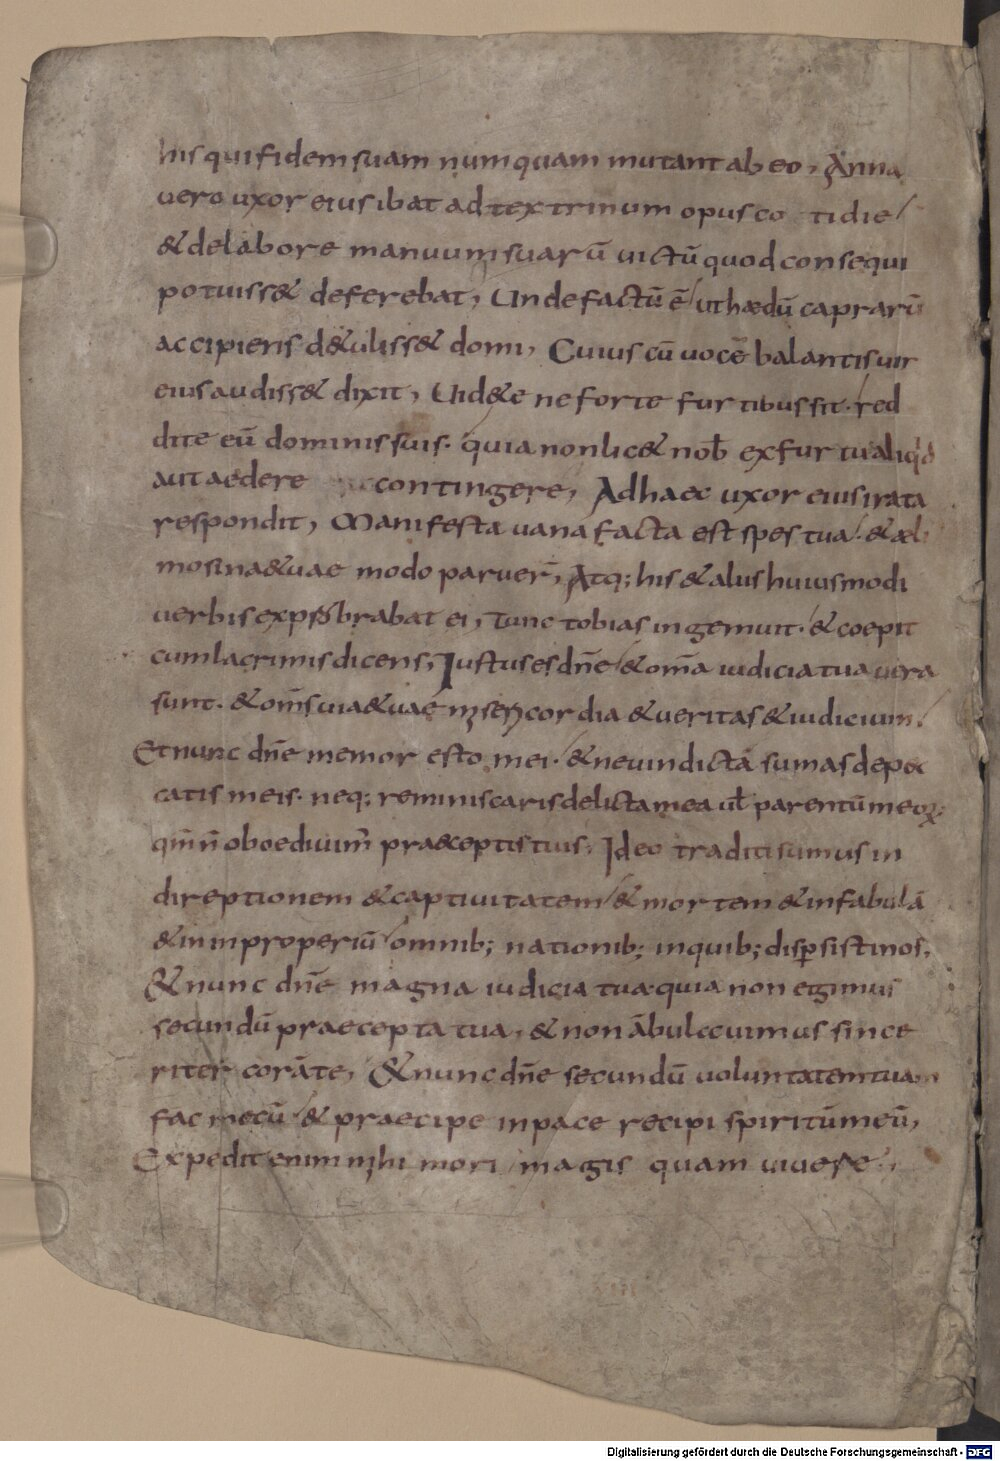 his qui fidem suam numquam mutant ab eo, Anna
vero uxor eius ibat ad textrinum opus co tidie
& de labore manuum suarū victū quod consequi
potuiss& deferebat, Unde factū ē ut hædū caprarū
accipiens d&uliss& domi, Cuius cū vocē balantis vir
eius audiss& dixit, Uid&e ne forte furtibus sit. red
dite eū dominis suis. quia non lic& nob̄ ex furtu aliqd
aut aedere contingere, Ad haec uxor eius irata
respondit, Manifesta vana facta est spes tua. & æli
mosinae &uae modo paruer̄, Atq; his & aliis huiusmodi
verbis exprobrabat ei, Tunc tobias ingemuit. & coepit
cum lacrimis dicens, Iustus es dn̄e & om̄a iudicia tua vera
sunt. & om̄s viae &uae misericordia & veritas & iudicium.
Et nunc dn̄e memor esto mei. & ne vindictā sumas de pec
catis meis. neq; reminiscaris delicta mea ul̄ parentū meoꝝ
qm̄ n̄ oboedivim̄ praeceptis tuis. Ideo traditi sumus in
direptionem & captivitatem & mortem & in fabulā
& in inproperiū omnib; nationib; in quib; dispersisti nos,
& nunc dn̄e magna iudicia tua. quia non egimus
secundū praecepta tua, & non ābulavimus since
riter corā te, & nunc dn̄e secundū voluntatem tuam
fac mecū & praecipe in pace recipi spiritū meū,
Expedit enim mihi mori magis quam vivere.,
Digitalisierung gefördert durch die Deutsche Forschungsgemeinschaft - DFG